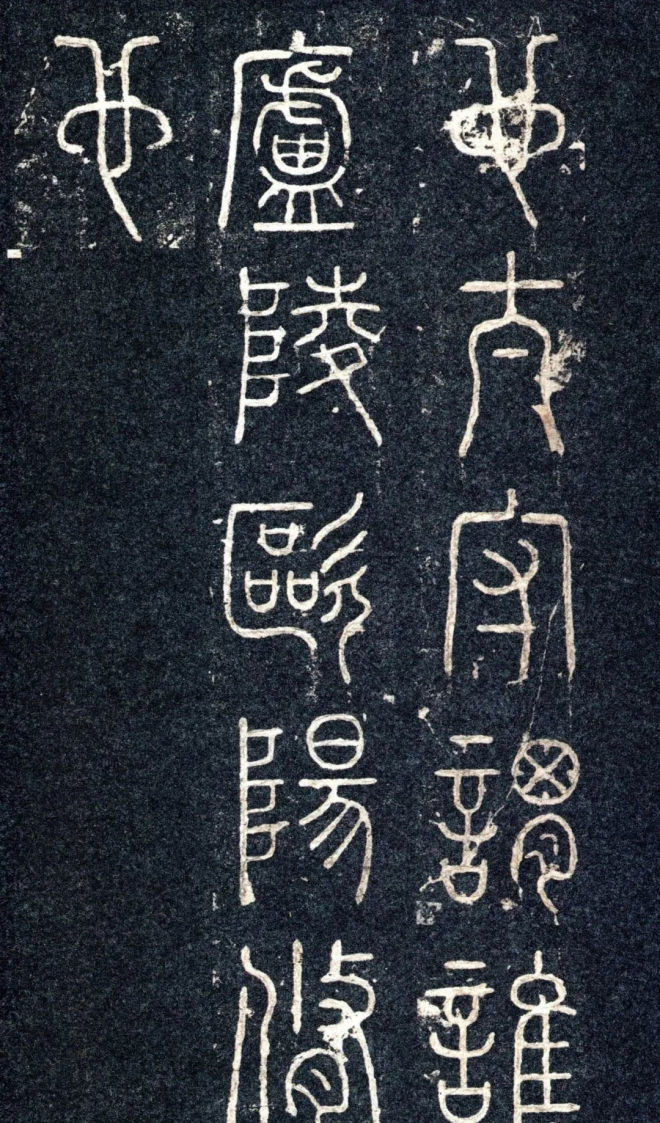 也太守謂誰
廬陵歐陽修
也